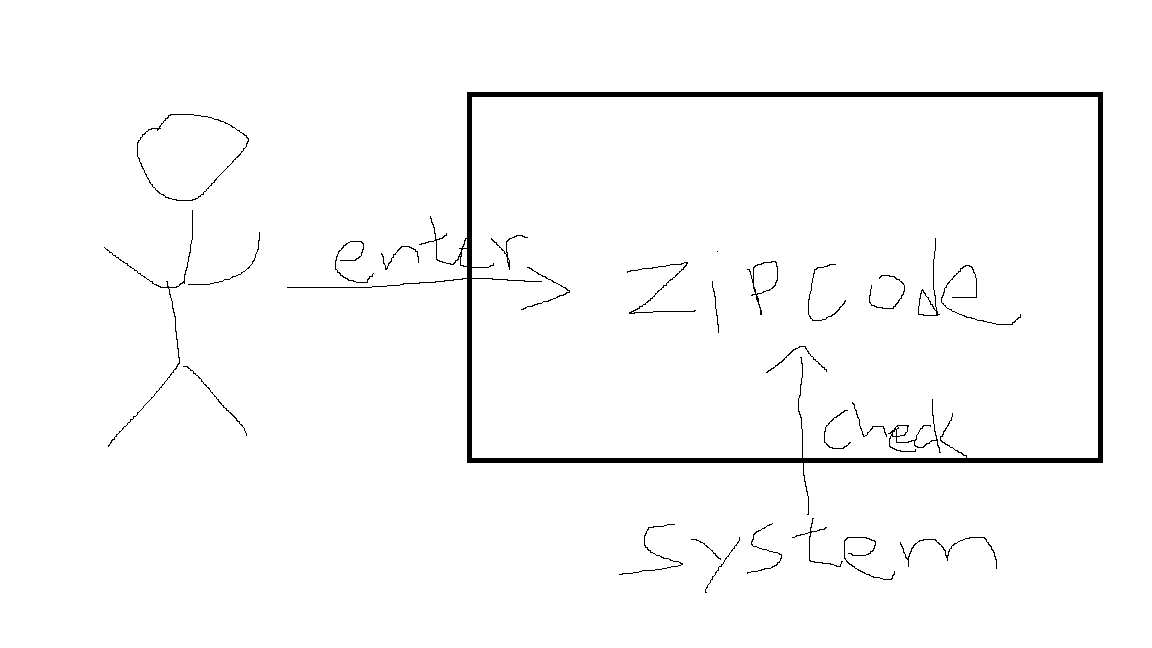 enter
zipcode
check
system